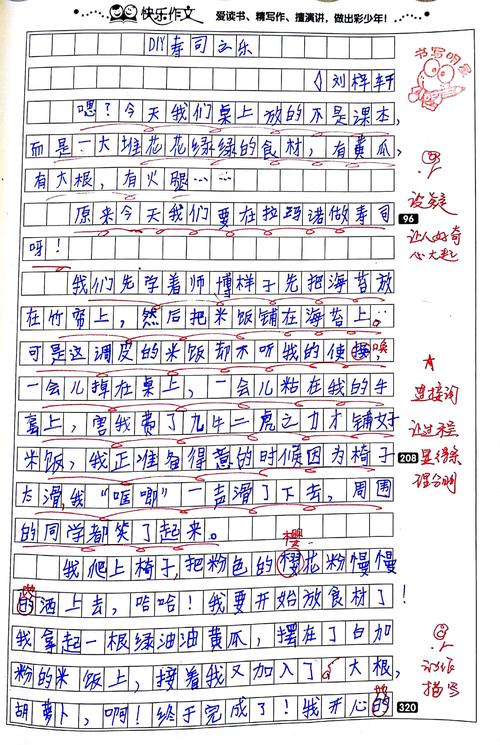 快乐作文 爱读书、精写作、擅演讲，做出彩少年！
DIY寿司之乐
刘梓轩
书写明星
嗯？今天我们桌上放的不是课本，
而是一大堆花花绿绿的食材，有黄瓜，
有大根，有火腿……
原来今天我们要在拉玛诺做寿司 96
呀！
设疑
让人好奇
心大起
我们先学着师博样子先把海苔放
在竹帘上，然后把米饭铺在海苔上。
可是这调皮的米饭却不听我的使唤
一会儿掉在桌上，一会儿粘在我的手
套上，害我费了九牛二虎之力才铺好
米饭，我正准备得意的时候因为椅子 208
太滑，我“哐唧”一声滑了下去，周围
的同学都笑了起来。
连接词
让过程
显得条
理分明
我爬上椅子，把粉色的樱花粉慢慢
的洒上去，哈哈！我要开始放食材了！
我拿起一根绿油油黄瓜，摆在了白加
粉的米饭上，接着我又加入了大根，
胡萝卜，啊！终于完成了！我开心的 320
樱
动作
描写